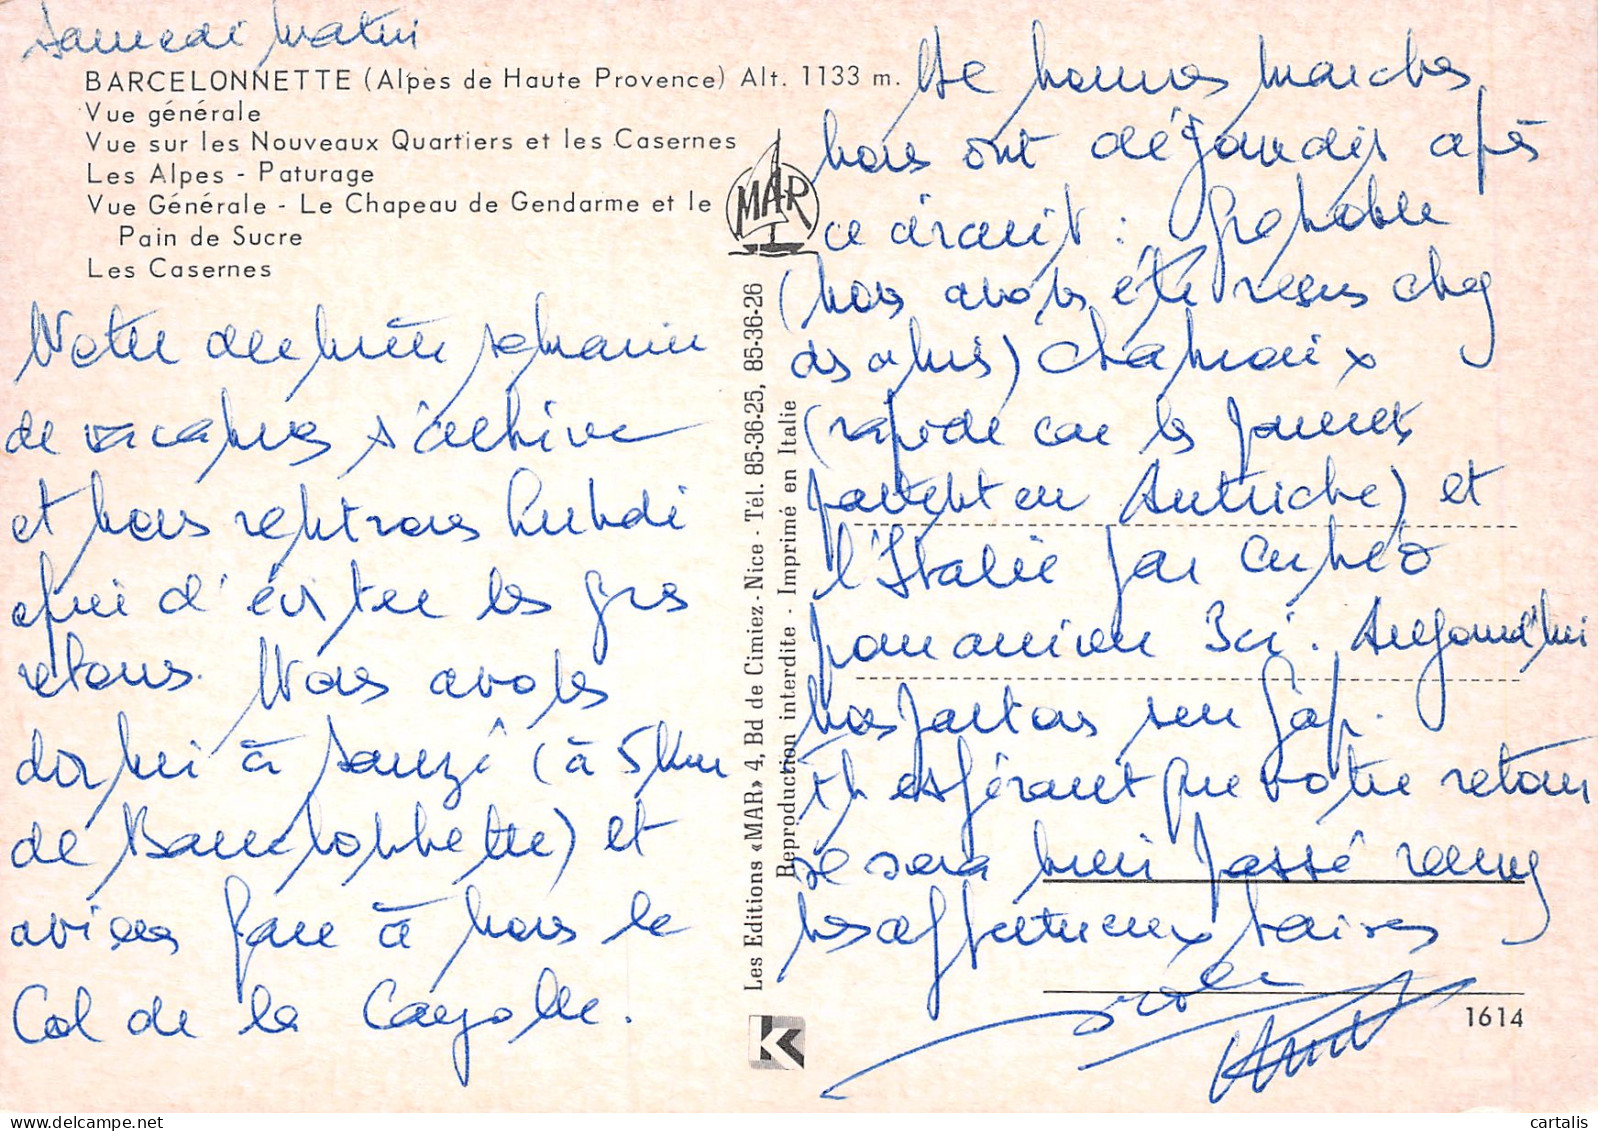 Samedi matin
BARCELONNETTE (Alpes de Haute Provence) Alt. 1133 m.
Vue générale
Vue sur les Nouveaux Quartiers et les Casernes
Les Alpes - Paturage
Vue Générale - Le Chapeau de Gendarme et le
Pain de Sucre
Les Casernes
MAR
Notre dernière semaine
de vacances s'achève
et nous rentrons lundi
afin d'éviter les gros
retours. Nous avons
dormi à Jauzié (à 5 km
de Barcelonnette) et
avions face à nous le
Col de la Cayolle.
Les Editions «MAR» 4, Bd de Cimiez - Nice - Tél. 85-36-25, 85-36-26
Reproduction interdite - Imprimé en Italie
De bonnes marches
nous ont dégourdis après
ce circuit : Grenoble
(nous avons été reçus chez
des amis) Chamonix
(rapide car les jeunes
partent en Autriche) et
l'Italie par Cuneo
pour arriver ici. Aujourd'hui
nous partons sur Gap.
En espérant que votre retour
se sera bien passé recevez
nos affectueux baisers
1614
K
cartalis
delcampe.net